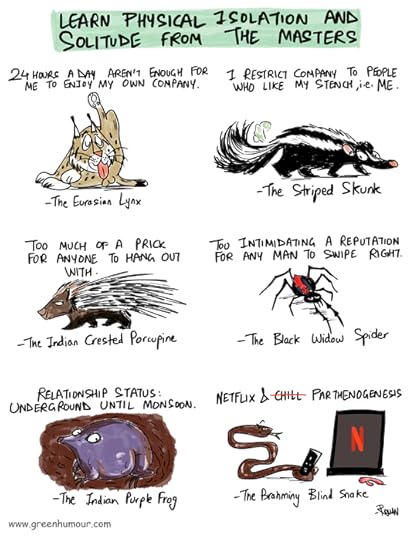 LEARN PHYSICAL ISOLATION AND
SOLITUDE FROM THE MASTERS
24 HOURS A DAY AREN'T ENOUGH FOR
ME TO ENJOY MY OWN COMPANY.
-The Eurasian Lynx
I RESTRICT COMPANY TO PEOPLE
WHO LIKE MY STENCH, i.e. ME.
-The Striped Skunk
TOO MUCH OF A PRICK
FOR ANYONE TO HANG OUT
WITH.
-The Indian Crested Porcupine
TOO INTIMIDATING A REPUTATION
FOR ANY MAN TO SWIPE RIGHT.
-The Black Widow Spider
RELATIONSHIP STATUS:
UNDERGROUND UNTIL MONSOON.
-The Indian Purple Frog
NETFLIX & CHILL PARTHENOGENESIS
N
-The Brahminy Blind Snake
ROHAN
www.greenhumour.com